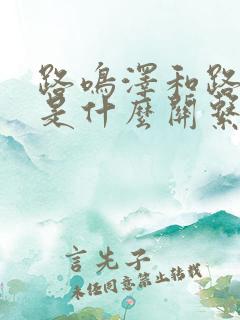 路鳴澤和路
是什麼關繫
言先子
未经同意禁止转载